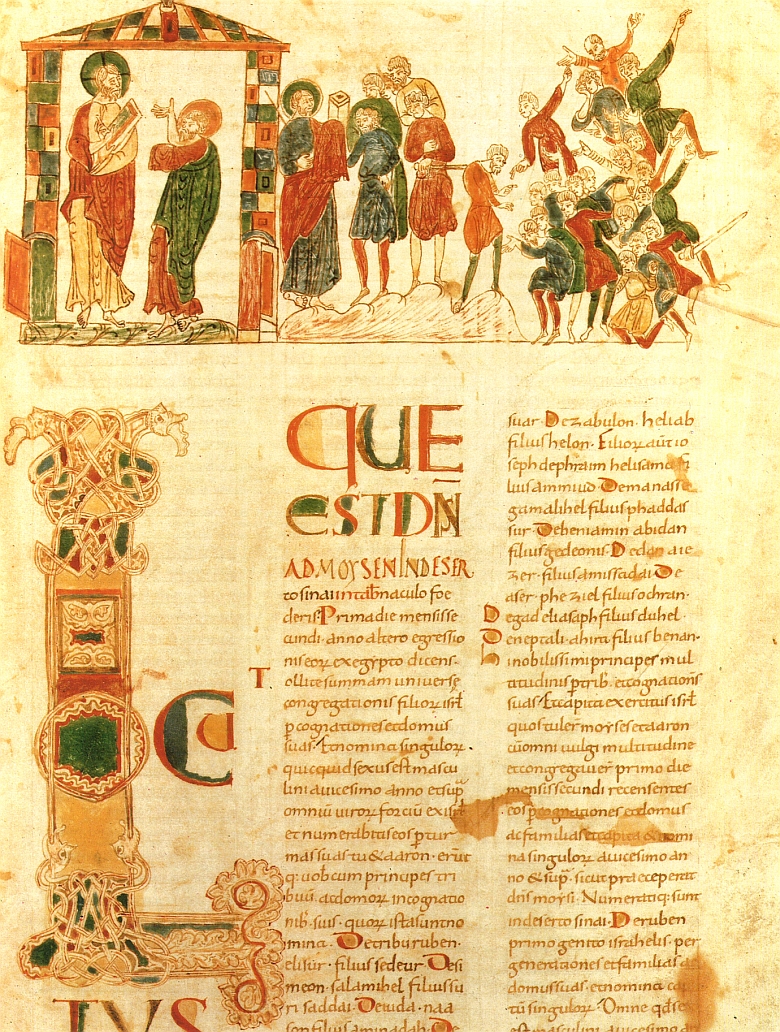 LOCU
TUS
QUE
EST DN̄S
AD MOYSEN IN DESER
to sinai in tab̄naculo foe
deris. Prima die mensis se
cundi. anno altero egressio
nis eoꝝ ex egypto dicens.
Tollite summam universe
congregationis filioꝝ isrl̄
p cognationes et domus
suas. Et nomina singuloꝝ.
quicquid sexus est mascu
lini a vicesimo anno et sup̄
omniū viroꝝ fortiū ex isrl̄
et numerabitis eos p tur
mas suas tu & aaron. erūt
q; vobcum principes tri
buū ac domoꝝ in cognatio
nib. suis. quoꝝ ista sunt no
mina. De tribu ruben.
elisur. filius sedeur. De si
meon. salamihel filius su
ri saddai. De iuda. naa
son filius aminadab. De
suar. De zabulon. heliab
filius helon. Filioꝝ autē io
seph de phraim helisama fi
lius ammiud. De manasse
gamalihel filius phaddas
sur. De beniamin abidan
filius gedeonis. De dan aie
zer. filius amissadai. De
aser. pheziel filius ochran.
De gad eliasaph filius duhel.
De neptali. ahira filius henan.
hi nobilissimi principes mul
titudinis p trib. et cognationes
suas. Et capita exercitus isrl̄
quos tuler̄ moyses et aaron
cū omni vulgi multitudine
et congregaver̄ primo die
mensis secundi recensentes
eos p cognationes et domus
ac familias et capita & nomi
na singuloꝝ a vicesimo an
no & sup̄. sicut praeceperat
dn̄s moysi. Numeratiq; sunt
in deserto sinai. De ruben
primogenito israhelis. per
generationes et familias ac
domus suas. et nomina capi
tū singuloꝝ. Omne qd sex
est masculini a vicesimo